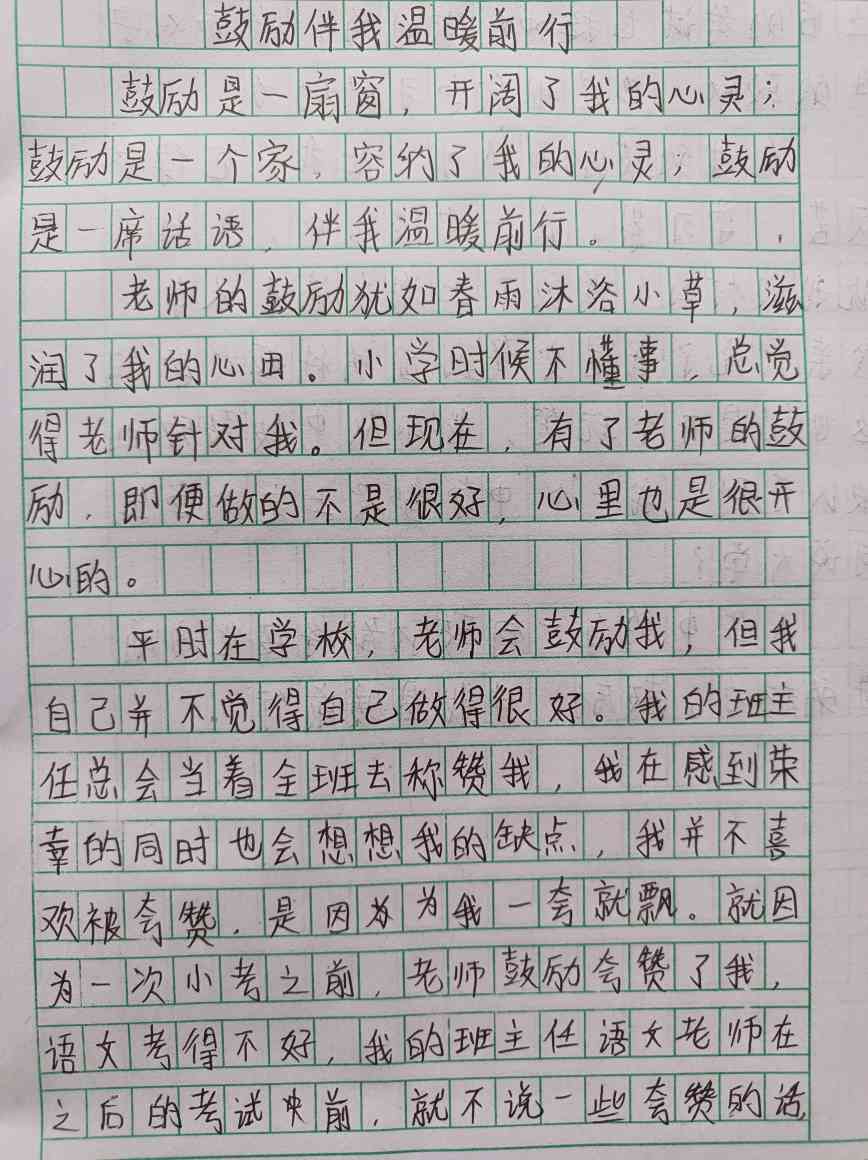 鼓励伴我温暖前行
鼓励是一扇窗，开阔了我的心灵；
鼓励是一个家，容纳了我的心灵；鼓励
是一席话语，伴我温暖前行。
老师的鼓励犹如春雨沐浴小草，滋
润了我的心田。小学时候不懂事，总觉
得老师针对我。但现在，有了老师的鼓
励，即便做的不是很好，心里也是很开
心的。
平时在学校，老师会鼓励我，但我
自己并不觉得自己做得很好。我的班主
任总会当着全班去称赞我，我在感到荣
幸的同时也会想想我的缺点，我并不喜
欢被夸赞，是因为为我一夸就飘。就因
为一次小考之前，老师鼓励夸赞了我，
语文考得不好，我的班主任语文老师在
之后的考试中前，就不说一些夸赞的话